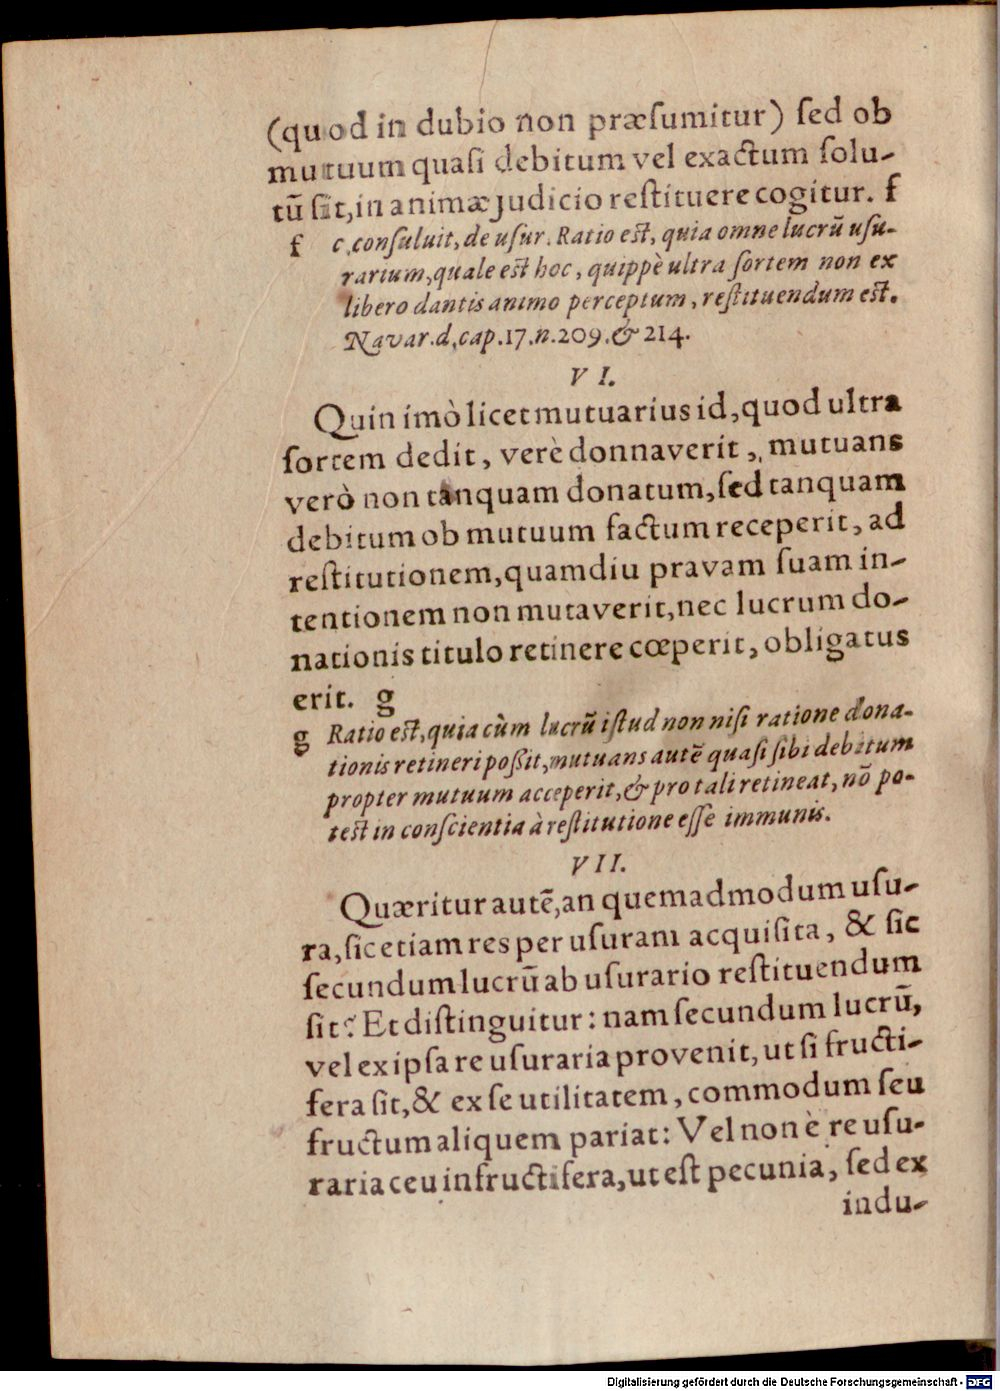 (quod in dubio non præſumitur) ſed ob
mutuum quaſi debitum vel exactum ſolu-
tū ſit, in animæ judicio reſtituere cogitur. f
f c. conſuluit, de uſur. Ratio eſt, quia omne lucrū uſu-
rarium, quale eſt hoc, quippè ultra ſortem non ex
libero dantis animo perceptum, reſtituendum eſt.
Navar. d. cap. 17. n. 209. & 214.
VI.
Quin imò licet mutuarius id, quod ultra
ſortem dedit, verè donnaverit, mutuans
verò non tanquam donatum, ſed tanquam
debitum ob mutuum factum receperit, ad
reſtitutionem, quamdiu pravam ſuam in-
tentionem non mutaverit, nec lucrum do-
nationis titulo retinere cœperit, obligatus
erit. g
g Ratio eſt, quia cùm lucrū iſtud non niſi ratione dona-
tionis retineri poſſit, mutuans autē quaſi ſibi debitum
propter mutuum acceperit, & pro tali retineat, nō po-
teſt in conſcientia à reſtitutione eſſe immunis.
VII.
Quæritur autē, an quemadmodum uſu-
ra, ſic etiam res per uſuram acquiſita, & ſic
ſecundum lucrū ab uſurario reſtituendum
ſit? Et diſtinguitur: nam ſecundum lucrū,
vel ex ipſa re uſuraria provenit, ut ſi fructi-
fera ſit, & ex ſe utilitatem, commodum ſeu
fructum aliquem pariat: Vel non è re uſu-
raria ceu infructifera, ut eſt pecunia, ſed ex
indu-
Digitalisierung gefördert durch die Deutsche Forschungsgemeinschaft - DFG